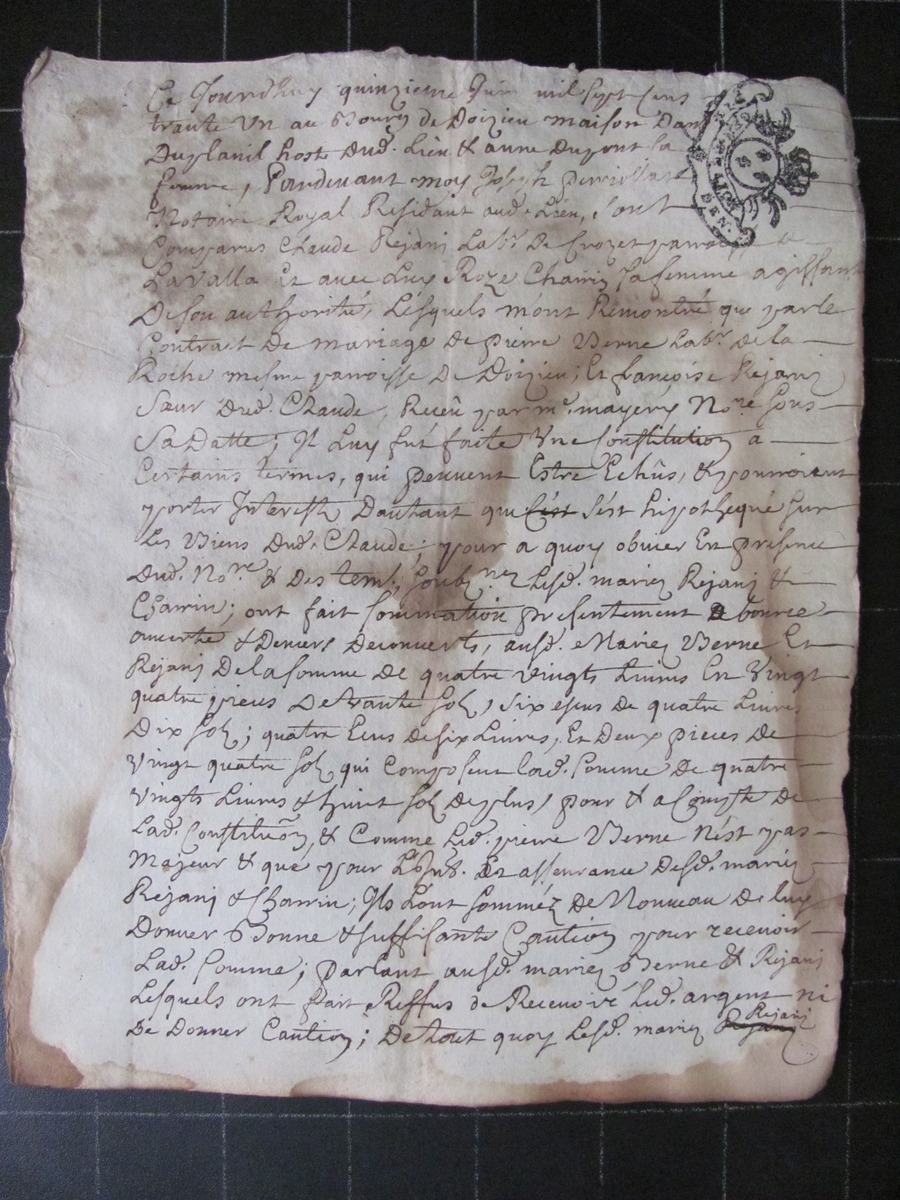 Ce Jourdhuy quinzieme Juin mil sept cens
trante un au Bourg de Doizieu maison Dan
Duplanil hoste Dud. Lieu & anne Dupont sa
femme, Pardevant moy Joseph
Notaire Royal Residant aud. Lieu, sont
Comparus Claude Rejani Labr. De Crozet parroisse de
LaValla Et avec Luy Roze Charrin sa femme agissant
De son authorité, Lesquels m'ont Remontré que par le
Contract De mariage de pierre Verne Labr. de la
Roche mesme parroisse De Doizieu; Et françoise Rejani
Sœur Dud. Claude, Receu par me. mayery Nore sous
Sa Datte; Il Luy fut faite Une Constitution a
Certains termes, qui peuvent Estre Echûs, & pourroient
porter Interesth Dautant que s'est hipothequé sur
Les Biens Dud. Claude; pour a quoy obvier En presence
Dud. Nore & Des tem. soubnez Lesd. mariez Rejani &
Charrin; ont fait sommation presentement a bource
ouverte & Deniers Decouverts, ausd. Mariez Verne Et
Rejani De la somme De quatre vingts Livres En Vingt
quatre pieces De trante sol, six escus de quatre Livres
Dix sol; quatre Ecus de six Livres, Et Deux pieces De
Vingt quatre sol qui Composent lad. somme De quatre
vingts Livres & huint sol de plus, pour & a Compte De
Lad. Constituõn, & Comme Led. pierre Verne N'est pas
Majeur & que pour Et asseurance Desd. mariez
Rejani & Charrin; Ils L'ont sommez De Nouveau De luy
Donner Bonne & suffisante Caution pour recevoir
Lad. somme; parlant ausd. mariez Verne & Rejani
Lesquels ont fait Reffus de Recevoir Led. argent ni
De Donner Caution; De tout quoy Lesd. mariez Rejani